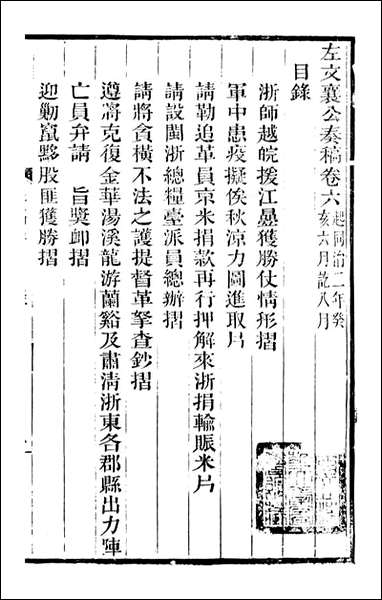 左文襄公奏稿卷六起同治二年癸亥六月訖八月
目錄
浙師越皖援江疊獲勝仗情形摺
軍中患疫擬俟秋涼力圖進取片
請勒追革員京米捐款再行押解來浙捐輸賑米片
請設閩浙總糧臺派員總辦摺
請將貪橫不法之護提督革拏查鈔摺
遵將克復金華湯溪龍游蘭谿及肅清浙東各郡縣出力陣
亡員弁請　旨獎卹摺
迎勦竄黟股匪獲勝摺